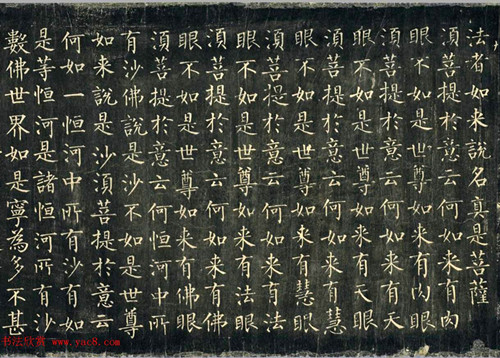 法者如来說名真是菩薩
須菩提於意云何如来有肉
眼不如是世尊如来有肉眼
須菩提於意云何如来有天
眼不如是世尊如来有天眼
須菩提於意云何如来有慧
眼不如是世尊如来有慧眼
須菩提於意云何如来有法
眼不如是世尊如来有法眼
須菩提於意云何如来有佛
眼不如是世尊如来有佛眼
須菩提於意云何恒河中所
有沙佛說是沙不如是世尊
如来說是沙須菩提於意云
何如一恒河中所有沙有如
是等恒河是諸恒河所有沙
數佛世界如是寧為多不甚
书法欣赏 www.yac8.com